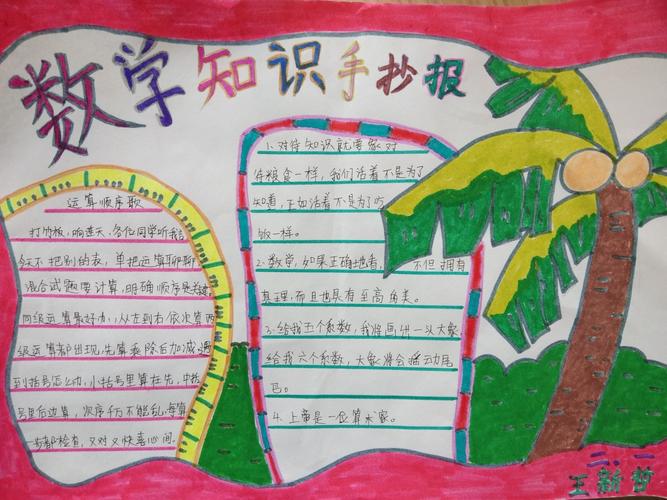 数学知识手抄报
运算顺序歌
打竹板,响连天,各位同学听我言
今天不把别的表,单把运算聊聊
混合试题要计算,明确顺序是关键
同级运算最好办,从左到右依次算两
级运算都出现,先算乘除后加减遇
到括号怎么办,小括号里算在先,中括
号里后边算,次序千万不能乱,每算
一步都检查,又对又快喜心间。
1、对待知识就要象对
待粮食一样,我们活着不是为了
知道,正如活着不是为了吃
饭一样。
2、数学,如果正确地看,不但拥有
真理,而且也具有至高的美。
3、给我五个系数,我将画出一头大象
给我六个系数,大象将会摇动尾
巴。
4、上帝是一位算术家。
二.一
王新哲